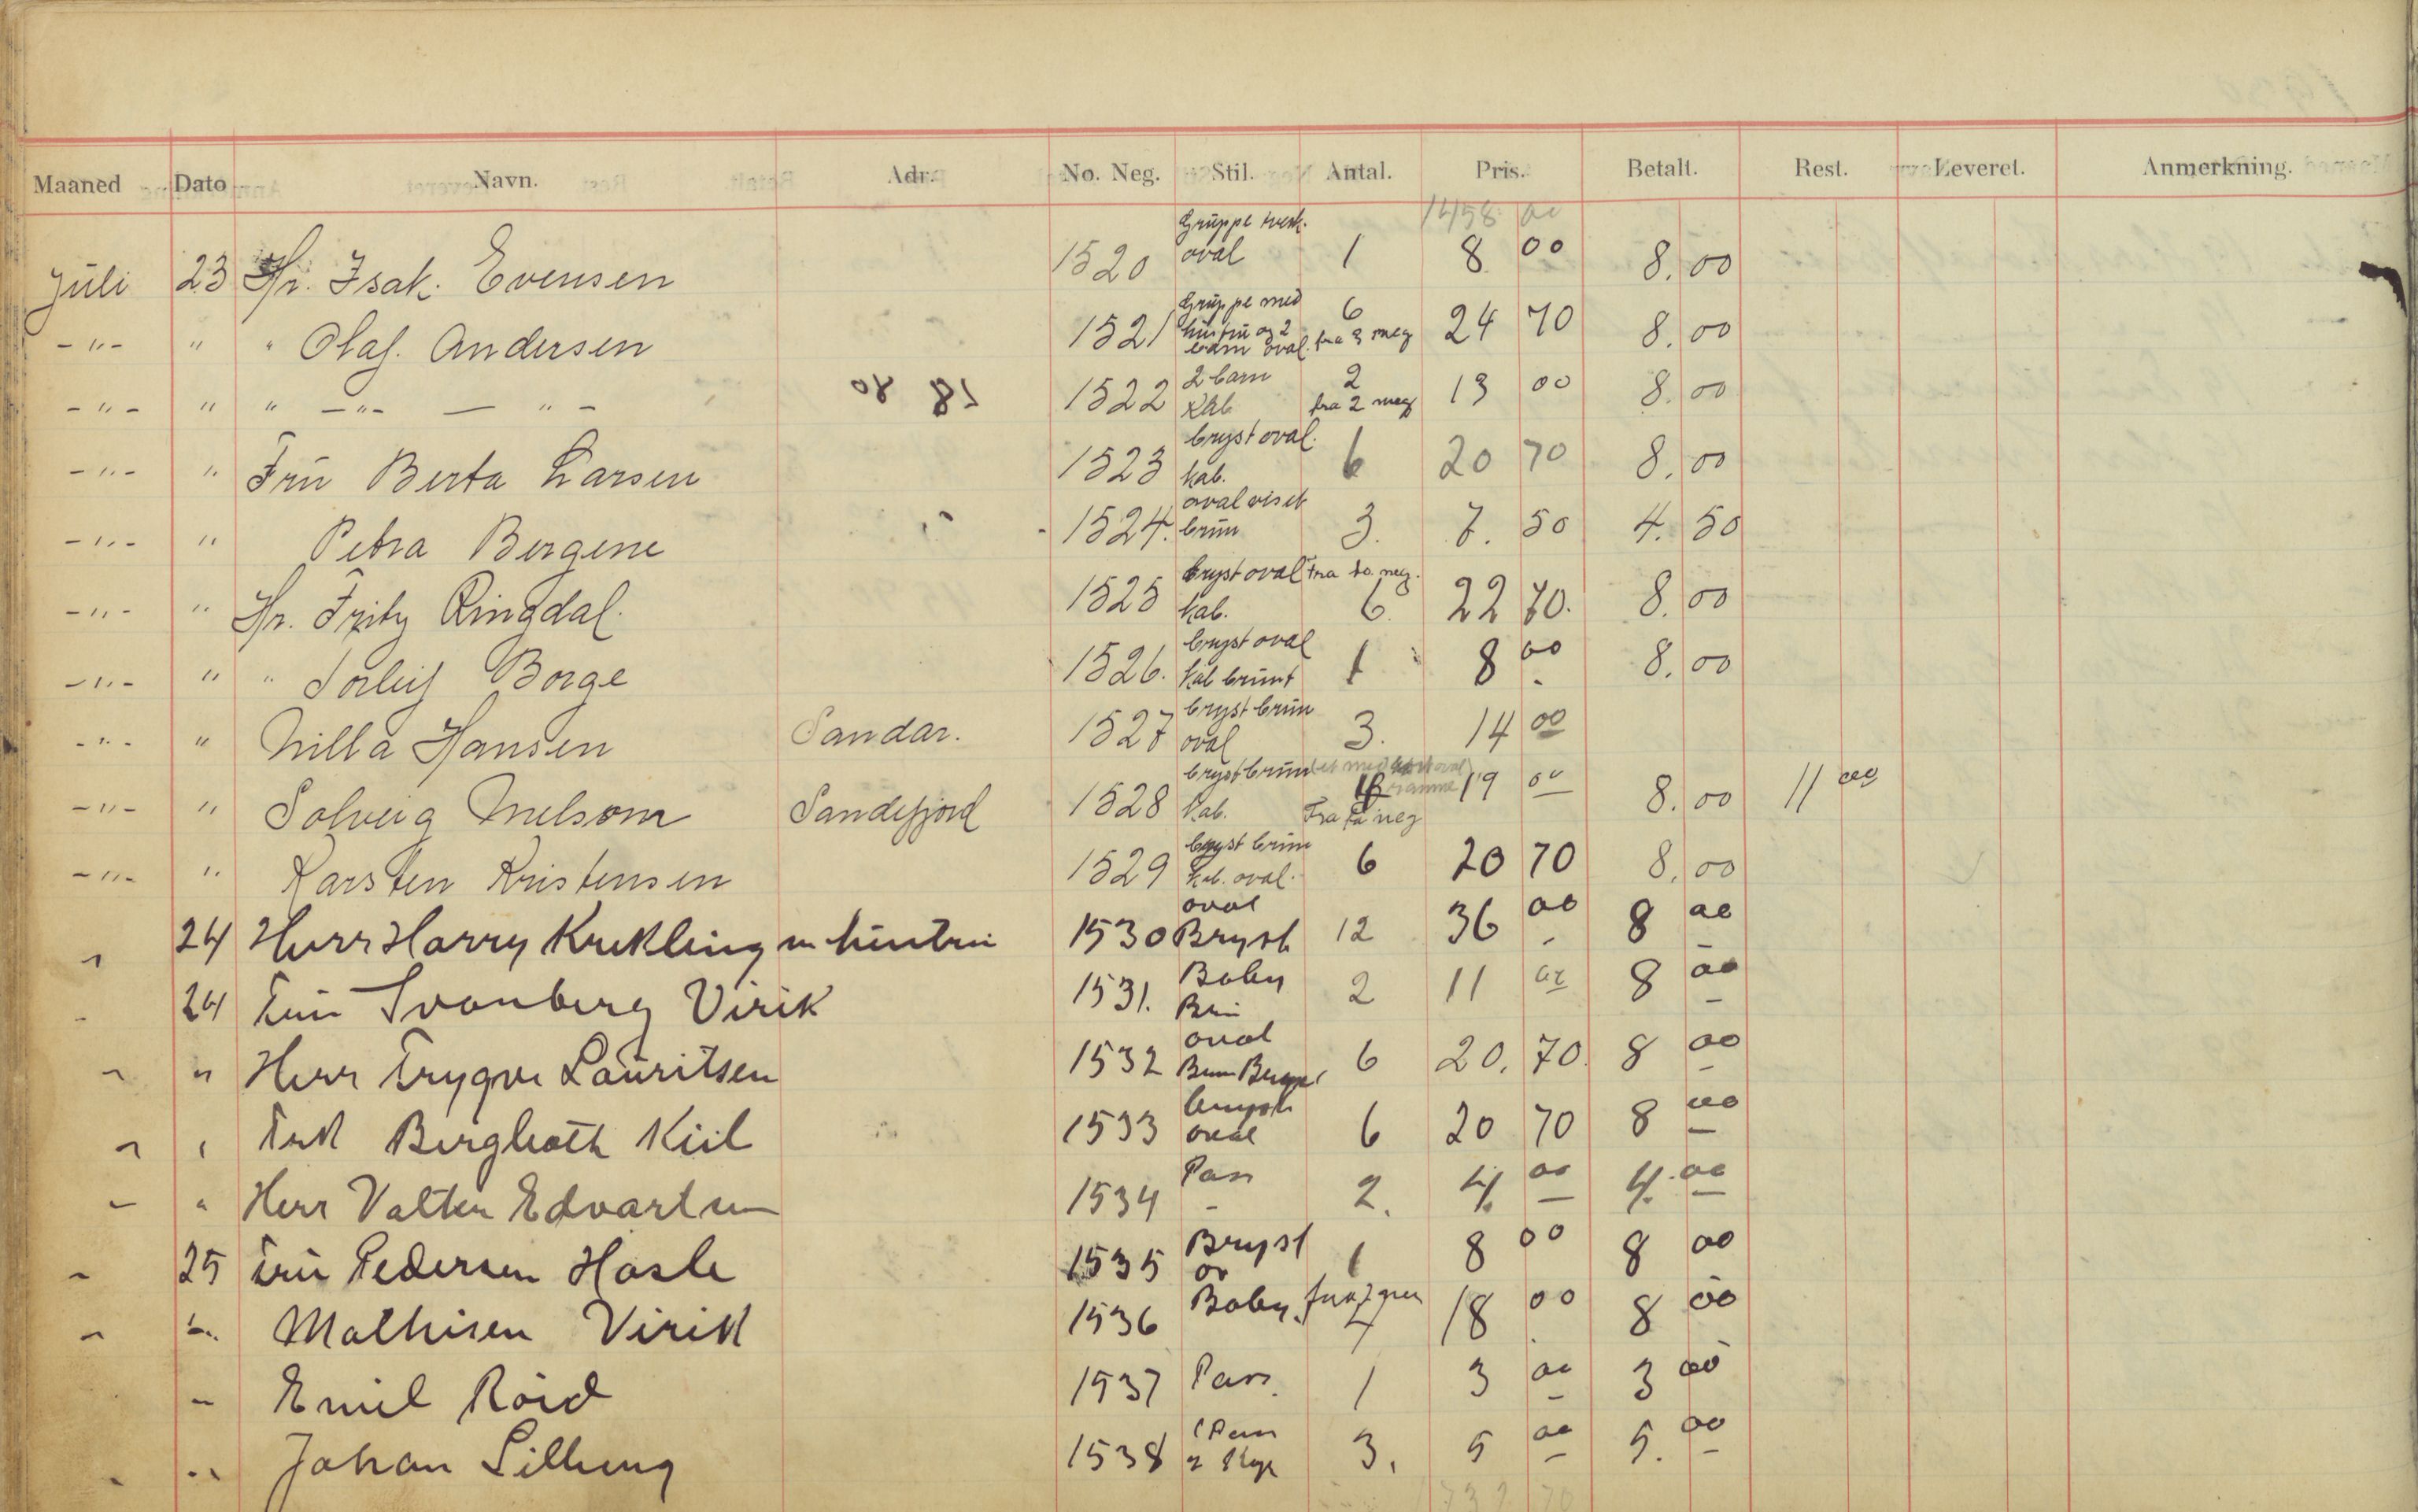 Maaned Dato Navn. Adr. No. Neg. Stil. Antal. Pris. Betalt. Rest. Leveret. Anmerkning.
1458 00
Juli 23 Hr. Isak. Evensen 1520 Gruppe oval 1 8 00 8.00
-"- " " Olaf. Andersen 1521 Gruppe med hustru og 2 barn oval. 6 fra 3 neg 24 70 8.00
-"- " " -"- — "- 1522 2 barn Kab 2 fra 2 neg 13 00 8.00
-"- " Fru Berta Larsen 1523 bryst oval. kab. 6 20 70 8.00
-"- " Petra Bergene 1524. oval visit brun 3. 7. 50 4. 50
-"- " Hr. Fritz Ringdal. 1525 bryst oval kab. fra to neg. 6. 22 70. 8.00
-"- " " Torleif Borge 1526. bryst oval Kab brunt 1 8 00 8.00
-"- " Nilla Hansen Sandar. 1527 bryst brun oval 3. 14 00
-"- " Solveig Melsom Sandefjord 1528 bryst brun kab. Fra to neg 19 00 8.00 11 00
-"- " Karsten Kristensen 1529 bryst brun kab. oval. 6 20 70 8.00
" 24 Herr Harry Krekling m hustru 1530 oval Bryst 12 36 00 8 00
- 24 Fru Svanberg Virik 1531. Baby Brun 2 11 00 8 00
" " Herr Trygve Lauritsen 1532 oval Brun 6 20. 70. 8 00
" " Frk Bergljoth Kiil 1533 bryst oval 6 20 70 8 00
" " Herr Valter Edvartsen 1534 Pas - 2. 4. 00 4. 00
" 25 Fru Pedersen Hasle 1535 Bryst ov 1 8 00 8 00
" " Mathisen Virik 1536 Baby. 18 00 8 00
" Emil Roid 1537 Pas. 1 3 00 3 00
" " Johan Lilleeng 1538 1 Pas 3. 5 00 5. 00